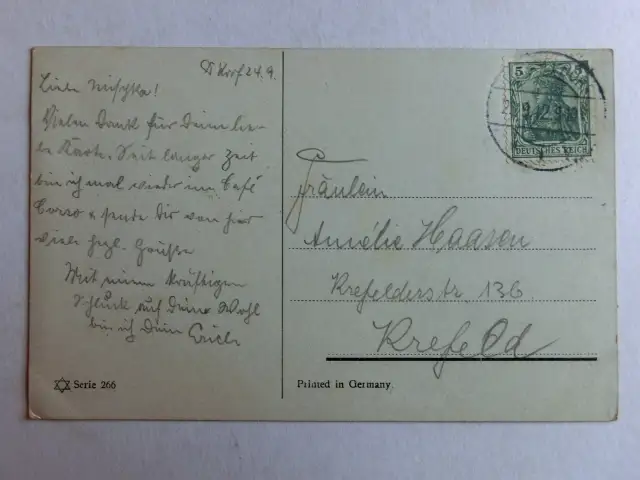 D'dorf 24.9.
Liebe Mischka!
Vielen Dank für Deine lie-
be Karte. Seit langer Zeit
bin ich mal wieder im Café
Corso & sende Dir von hier
viele hzgl. Grüße
Mit einem kräftigen
Schluck auf Deine Wohl
bin ich Dein Erich
Serie 266
5
DEUTSCHES REICH
Fräulein
Amélie Haasen
Krefelderstr. 136
Krefeld
Printed in Germany.